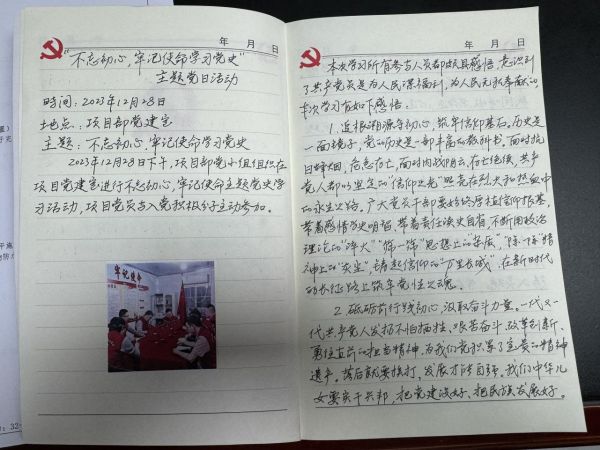 年 月 日
"不忘初心,牢记使命学习党史"
主题党日活动
时间:2023年12月28日
地点:项目部党建室
主题:不忘初心,牢记使命学习党史
2023年12月28日下午,项目部党小组组织在
项目党建室进行不忘初心,牢记使命主题党史学
习活动,项目党员与入党积极分子主动参加。
牢记使命
年 月 日
本次学习所有参与人员都颇具感悟,意识到
了共产党员是为人民谋福利,为人民无私奉献的,
本次学习有如下感悟:
1.追根溯源寻初心,筑牢信仰基石。历史是
一面镜子,党的历史是一部丰富的教科书。面对抗
日烽烟,危急存亡,面对内战明击,存亡绝续,共产
党人都以坚定的"信仰之光"照亮在烈火和热血中
的永生之路。广大党员干部要始终厚植信仰根基,
带着感情学史明智,带着责任读史自省,不断用政治
理论的"淬火""饰一饰"思想上的年成,"除一除"精
神上的"灰尘",铸起信仰的"万里长城",在新时代
的长征路上筑牢党性之魂。
2.砥砺前行践初心,汲取奋斗力量。一代又一
代共产党人发扬不怕牺牲、艰苦奋斗、改革创新、
勇往直前的担当精神,为我们党积累了宝贵的精神
遗产。落后就要挨打,发展才能自强。我们中华儿
女要实干兴邦,把党建设好、把民族发展好。